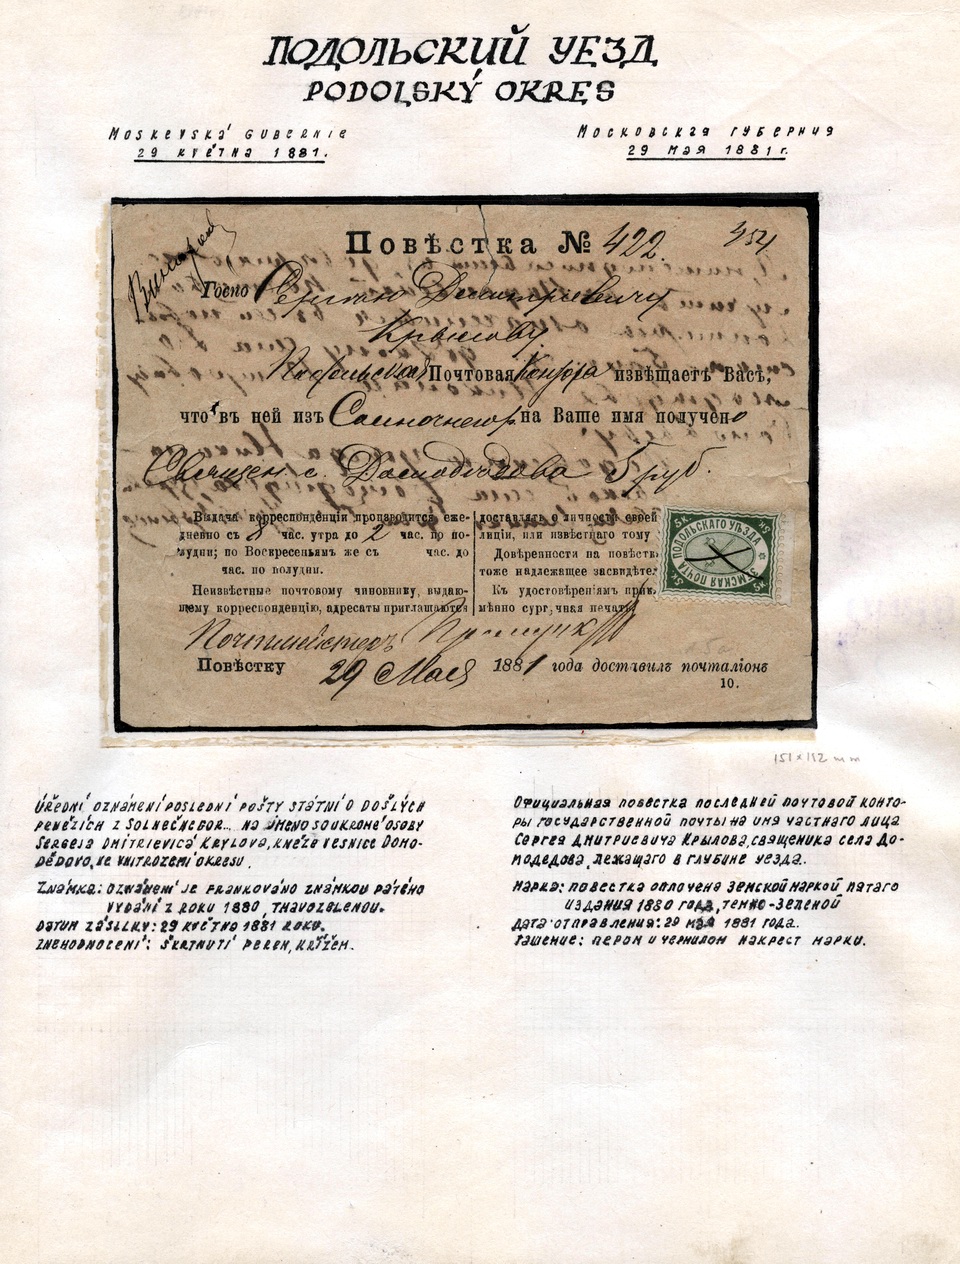 ПОДОЛЬСКИЙ УЕЗД
PODOLSKÝ OKRES
MOSKEVSKÁ GUBERNIE
29 KVĚTNA 1881.
МОСКОВСКАЯ ГУБЕРНИЯ
29 МАЯ 1881 г.
Повѣстка № 422.
454
Госпо Сергѣю Дмитріевичу
Крылову
Подольская Почтовая Контора извѣщаетъ Васъ,
что въ ней изъ Солнечногор. на Ваше имя получено
Священ с. Домодѣдова 5 руб.
Выдача корреспонденціи производится еже-
дневно съ 8 час. утра до 2 час. по по-
лудни; по Воскресеньямъ же съ час. до
час. по полудни.
Неизвѣстные почтовому чиновнику, выдаю-
щему корреспонденцію, адресаты приглашаются
доставлять о личности своей
лиціи, или извѣстнаго тому
Довѣренности на повѣстк
тоже надлежащее засвидѣте
Къ удостовѣреніямъ прик
мѣнно сургучная печать
ПОДОЛЬСКАГО УѢЗДА
ЗЕМСКАЯ ПОЧТА
5К 5К 5К 5К
Почтмейстеръ
Повѣстку 29 Мая 1881 года доставилъ почталіонъ
10.
151 x 112 mm
ÚŘEDNÍ OZNÁMENÍ POSLEDNÍ POŠTY STÁTNÍ O DOŠLÝCH
PENĚZÍCH Z SOLNEČNEGOR... NA JMÉNO SOUKROMÉ OSOBY
SERGEJA DMITRIEVIČA KRYLOVA, KNĚZE VESNICE DOMO-
DĚDOVO, VE VNITROZEMÍ OKRESU.
ZNÁMKA: OZNÁMENÍ JE FRANKOVÁNO ZNÁMKOU PÁTÉHO
VYDÁNÍ Z ROKU 1880, TMAVOZELENOU.
DATUM ZÁSILKY: 29 KVĚTNA 1881 ROKU.
ZNEHODNOCENÍ: ŠKRTNUTÍ PEREM, KŘÍŽEM.
ОФИЦИАЛЬНАЯ ПОВЕСТКА ПОСЛЕДНЕЙ ПОЧТОВОЙ КОНТО-
РЫ ГОСУДАРСТВЕННОЙ ПОЧТЫ НА ИМЯ ЧАСТНАГО ЛИЦА
СЕРГЕЯ ДМИТРИЕВИЧА КРЫЛОВА, СВЯЩЕНИКА СЕЛА ДО-
МОДЕДОВА, ЛЕЖАЩАГО В ГЛУБИНЕ УЕЗДА.
МАРКА: ПОВЕСТКА ОПЛОЧЕНА ЗЕМСКОЙ МАРКОЙ ПЯТАГО
ИЗДАНИЯ 1880 ГОДА, ТЕМНО-ЗЕЛЕНОЙ
ДАТА ОТПРАВЛЕНИЯ: 29 МАЯ 1881 ГОДА.
ГАШЕНИЕ: ПЕРОМ И ЧЕРНИЛОМ НАКРЕСТ МАРКИ.